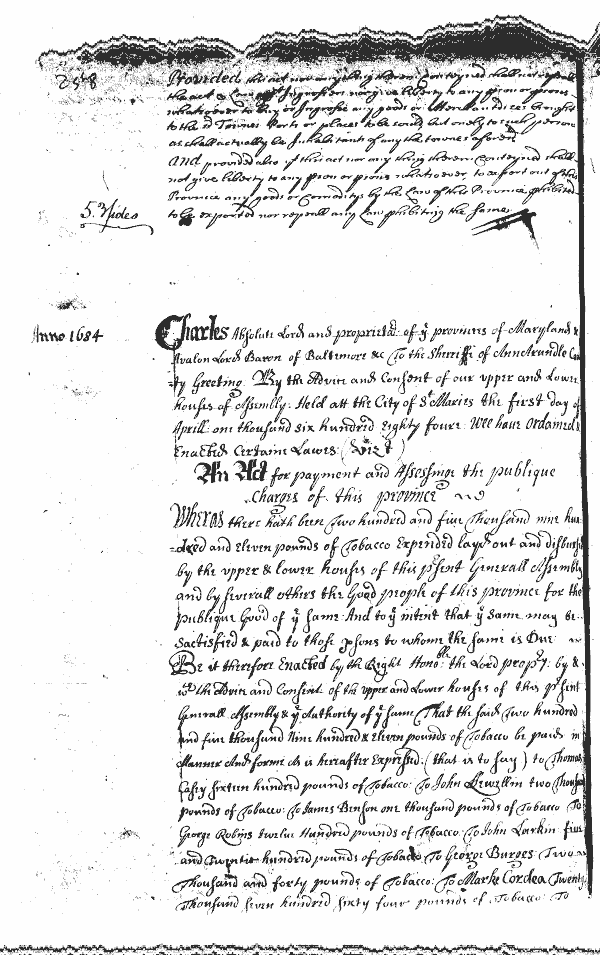 258
Provided this act nor any thing therein Conteyned shall not repeall
the act ag Ingrossers nor give liberty to any pson or psons
whatsoever to buy or Ingrosse any goods or Merchandizes brought
to the sd Townes Ports or places to be sould but onely to such persons
as shall actually be Inhabitants of any the townes aforesd
And provided also yt this act nor any thing therein Conteyned shall
not give liberty to any pson or psons whatsoever to export out of this
Province any goods or Comoditys by the Law of this Province phibited
to be exported nor repeall any Law phibiting the same
5. Sides
Anno 1684
Charles Absolute Lord and proprietā: of ye provinces of Maryland &
Avalon Lord Baron of Baltimore &c To the Sheriffe of AnnArundle Coun
ty Greeting. By the Advice and Consent of our upper and Lower
houses of Assembly. Held att the City of St Maries the first day of
Aprill one thousand six hundred Eighty foure. Wee have ordained &
Enacted Certaine Lawes (Vizt)
An Act for payment and Assessing the publique
Charges of this province
Whereas there hath been Two hundred and five Thousand nine hun
-dred and Eleven pounds of Tobacco Expended layd out and disbursed
by the upper & lower houses of this psent Generall Assembly
and by severall others the Good people of this province for the
publique Good of ye same And to ye intent that ye same may be
Sattisfied & paid to those psons to whome the same is Due
Be it therefore Enacted by the Right Honoble: the Lord propry: by &
wth the Advice and Consent of the upper and Lower houses of this psent
Generall Assembly & ye Authority of ye same That the said Two hundred
and five thousand Nine hundred & Eleven pounds of Tobacco be paid in
Manner And forme As is hereafter Expressed: (that is to say) to Thomas
Casey sixteen hundred pounds of Tobacco: To John Lewellin two thousand
pounds of Tobacco: To James Benson one thousand pounds of Tobacco To
George Robins twelve Hundred pounds of Tobacco: To John Larkin five
and Twentie hundred pounds of Tobacco To George Burges Two
Thousand and forty pounds of Tobacco: To Marke Cordea Twenty
Thousand seven hundred sixty four pounds of Tobacco: To